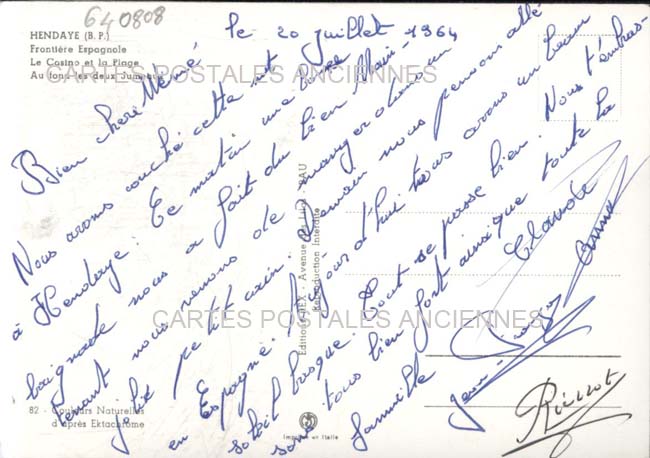 640808
HENDAYE (B. P.)
Frontière Espagnole
Le Casino et la Plage
Au fond les deux Jumeaux
CARTES POSTALES ANCIENNES
le 20 juillet 1964
Bien chère Mémé
Nous avons couché cette nuit
à Hendaye. Ce matin une bonne
baignade nous a fait du bien. Main-
tenant nous venons de manger dans un
joli petit coin. Demain nous pensons allé
en Espagne. Aujourd'hui nous avons un beau
soleil basque. Tout se passe bien. Nous t'embras-
sons tous bien fort ainsi que toute la
famille
Claude
Jean-François
Editions REX - Avenue PAU
Reproduction Interdite
CARTES POSTALES ANCIENNES
82 - Couleurs Naturelles
d'après Ektachrome
Imprimé en Italie